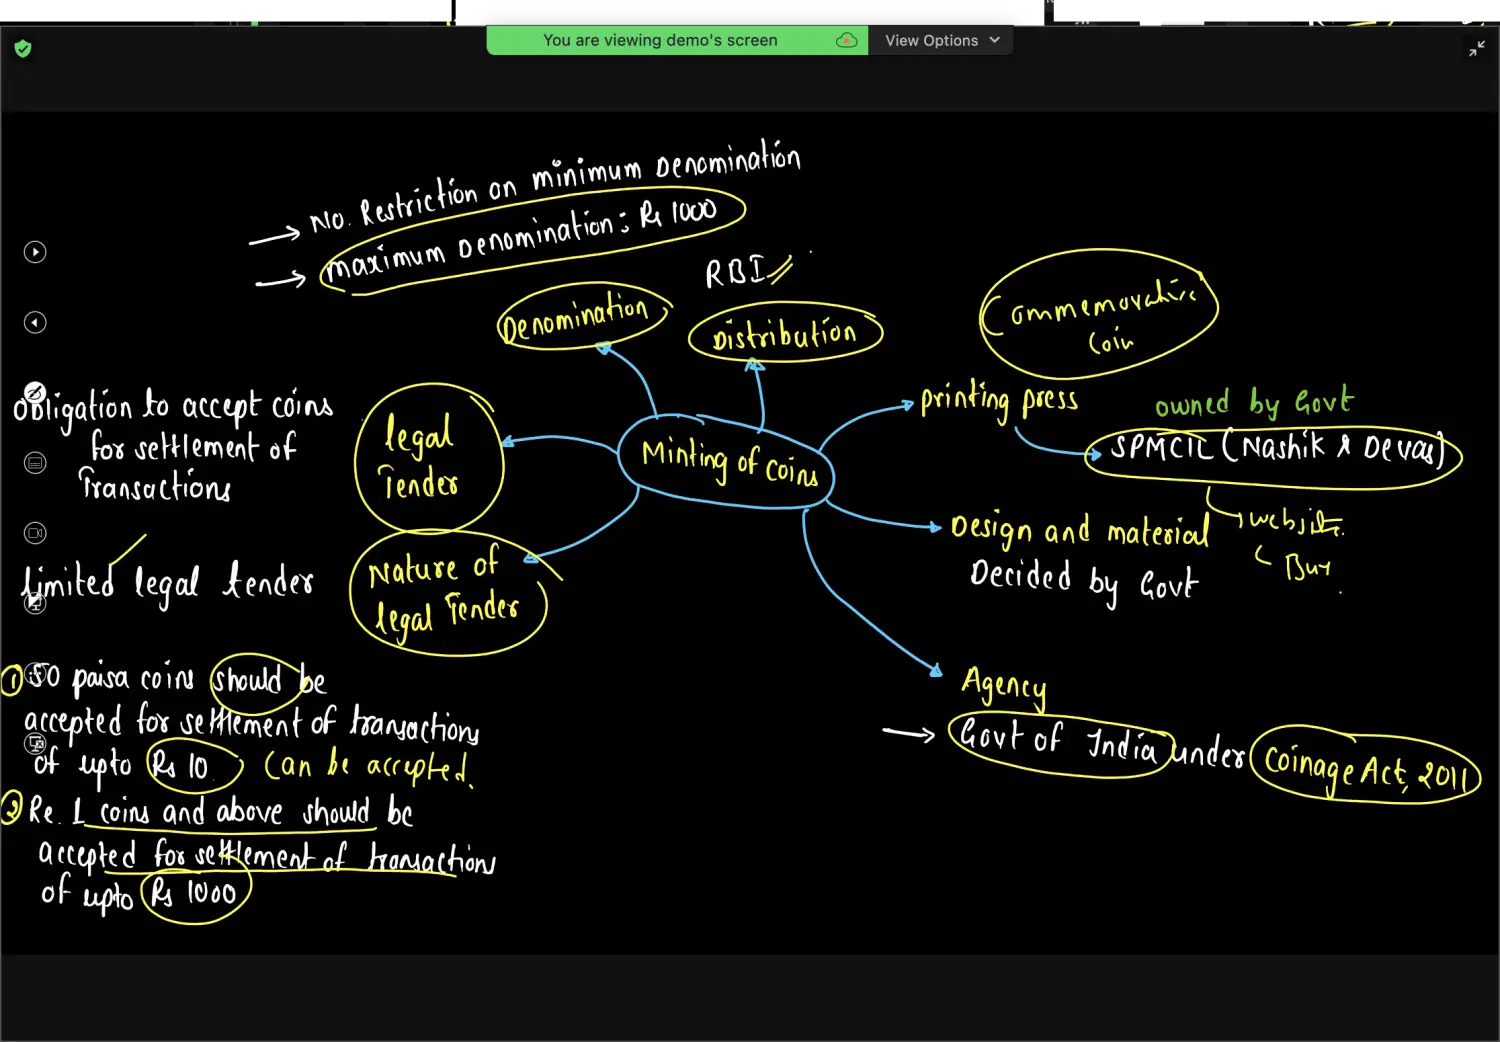 You are viewing demo's screen
View Options
→ No. Restriction on minimum Denomination
→ maximum Denomination: Rs 1000
RBI
Denomination
Distribution
Commemorative
Coin
printing press
owned by Govt
SPMCIL (Nashik & Devas)
website
Buy
obligation to accept coins
for settlement of
Transactions
legal
Tender
Minting of coins
Design and material
Decided by Govt
limited legal tender
Nature of
legal Tender
① 50 paisa coins should be
accepted for settlement of transactions
of upto Rs 10. Can be accepted.
② Re. 1 coins and above should be
accepted for settlement of transactions
of upto Rs 1000
Agency
→ Govt of India under Coinage Act, 2011